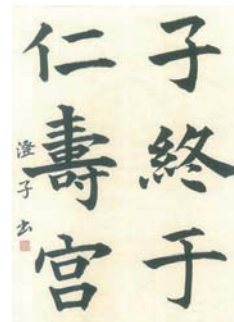 子終于
仁壽宮
澄子书